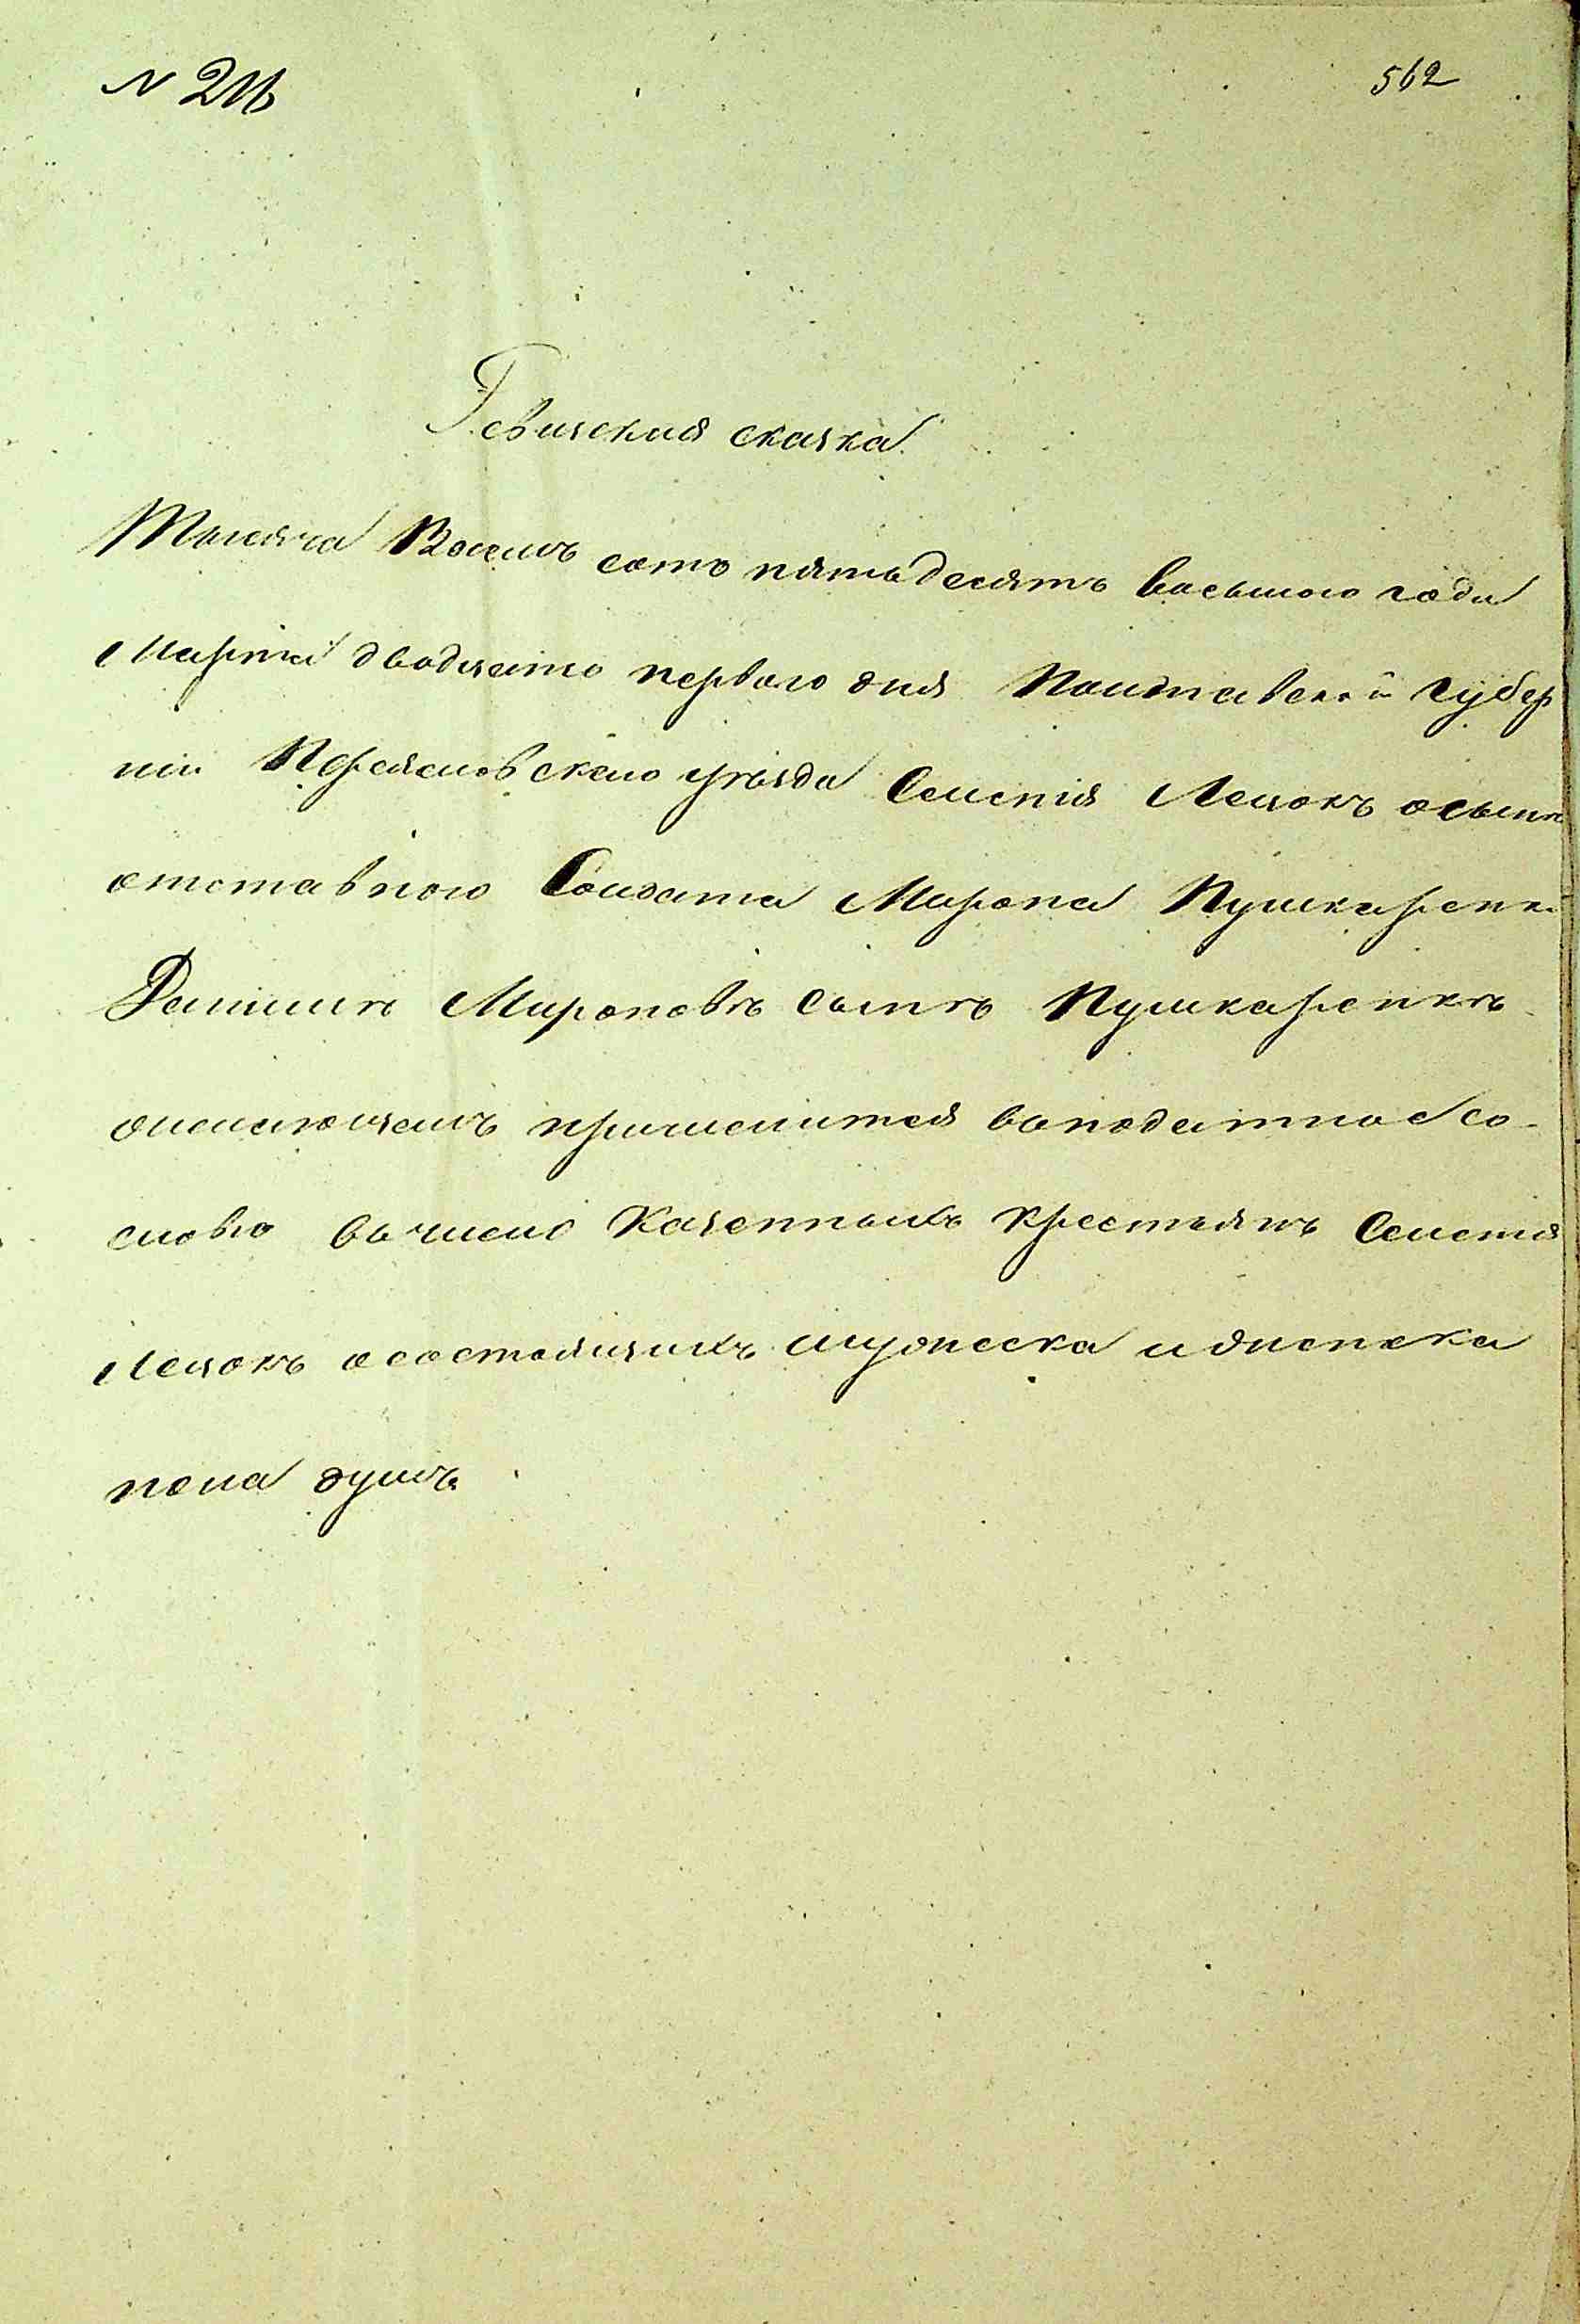 N 211
562
Ревизская сказка.
Тысяча Восемь сотъ пятьдесятъ восьмого года
Марта двадцать первого дня Полтавской губер
ніи Переяславского уѣзда Селенія Лецокъ о сынѣ
отставного Солдата Мирона Пушкаренка
Мироновъ сынъ Пушкаренкъ
причислится въ податное со-
словіе въ число Казенныхъ Крестьянъ Селенія
Лецокъ о состоящихъ мужеска и женска
пола душъ